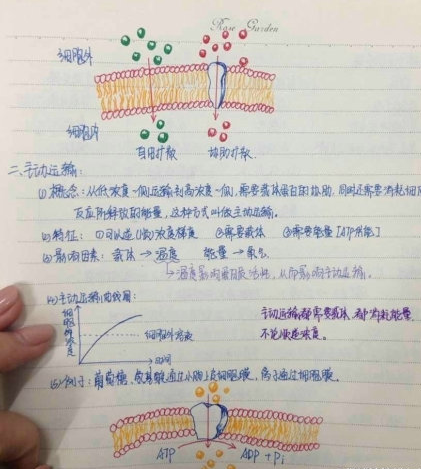 Rose Garden
细胞外
细胞内
自由扩散 协助扩散
二、主动运输:
(1) 概念:从低浓度一侧运输到高浓度一侧,需要载体蛋白的协助,同时还需要消耗细胞
反应所释放的能量,这种方式叫做主动运输。
(2) 特征:①可以逆(低)浓度梯度 ②需要载体 ③需要能量[ATP供能]
(3) 影响因素:载体→温度 能量→氧气
↳温度影响 ,从而影响主动运输。
(4) 主动运输曲线图:
细胞外浓度
细胞外溶液
时间
主动运输都需要载体,都消耗能量
不论顺逆浓度。
(5) 例子:葡萄糖、氨基酸通过小肠上皮细胞膜,离子通过细胞膜。
ATP ADP + Pi